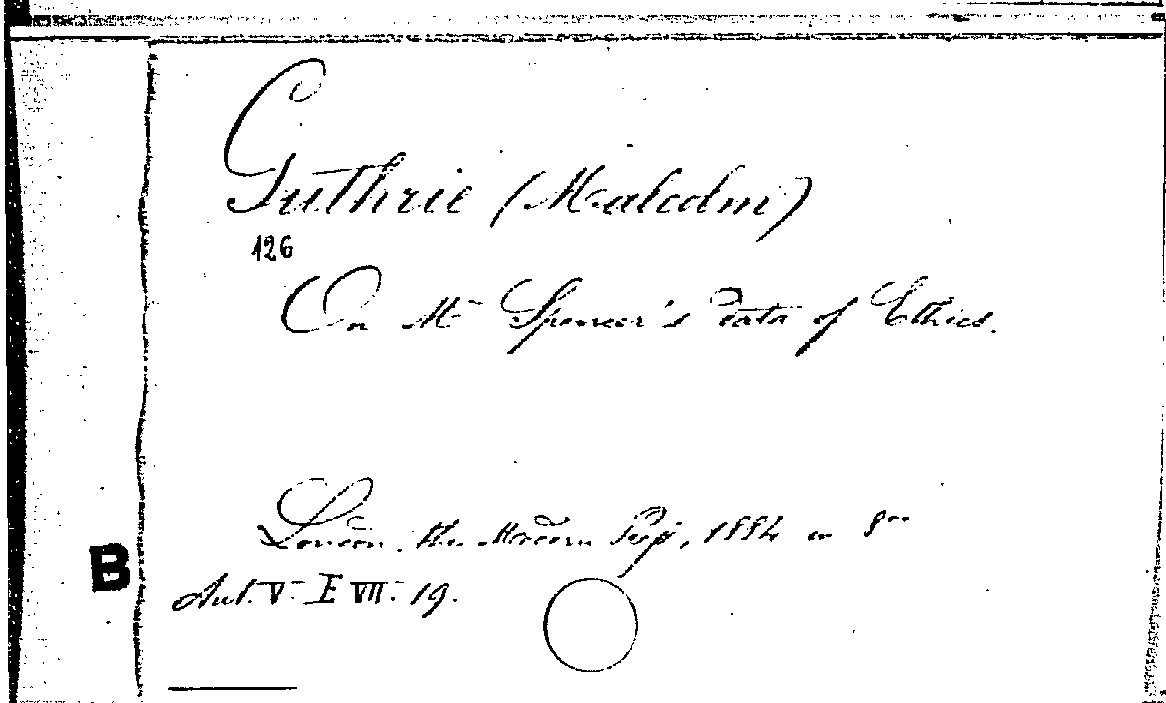 Guthrie (Malcolm)
126
On Mr Spencer's Data of Ethics.
London, the Modern Press, 1884 in 8vo
B
Ant. V. E VII. 19.